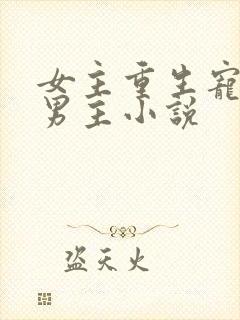 女主重生寵
男主小說
盜天火